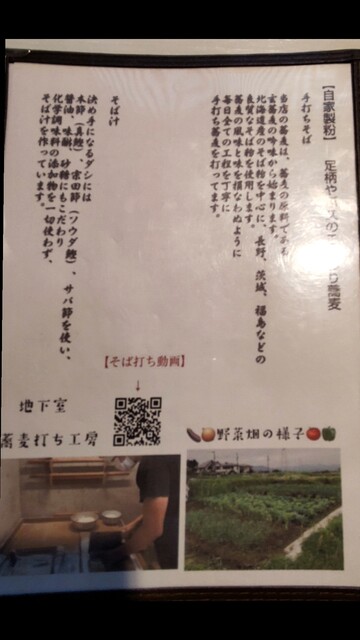 【自家製粉】
手打ちそば
当店の蕎麦は、蕎麦の原料である
玄蕎麦の吟味から始まります。
北海道産のそば粉を中心に、長野、茨城、福島などの
良質なそば粉を使用します。
蕎麦の風味と味を損なわぬように
毎日全ての工程を丁寧に
手打ち蕎麦を打ってます。
そば汁
決め手になるダシには
本節（真鰹）、宗田節（ソウダ鰹）、サバ節を使い、
醤油、味醂、砂糖にもこだわり
化学調味料の添加物を一切使わず、
そば汁を作っています。
【そば打ち動画】
↓
地下室
蕎麦打ち工房
🍆🧅野菜畑の様子🍅🫑